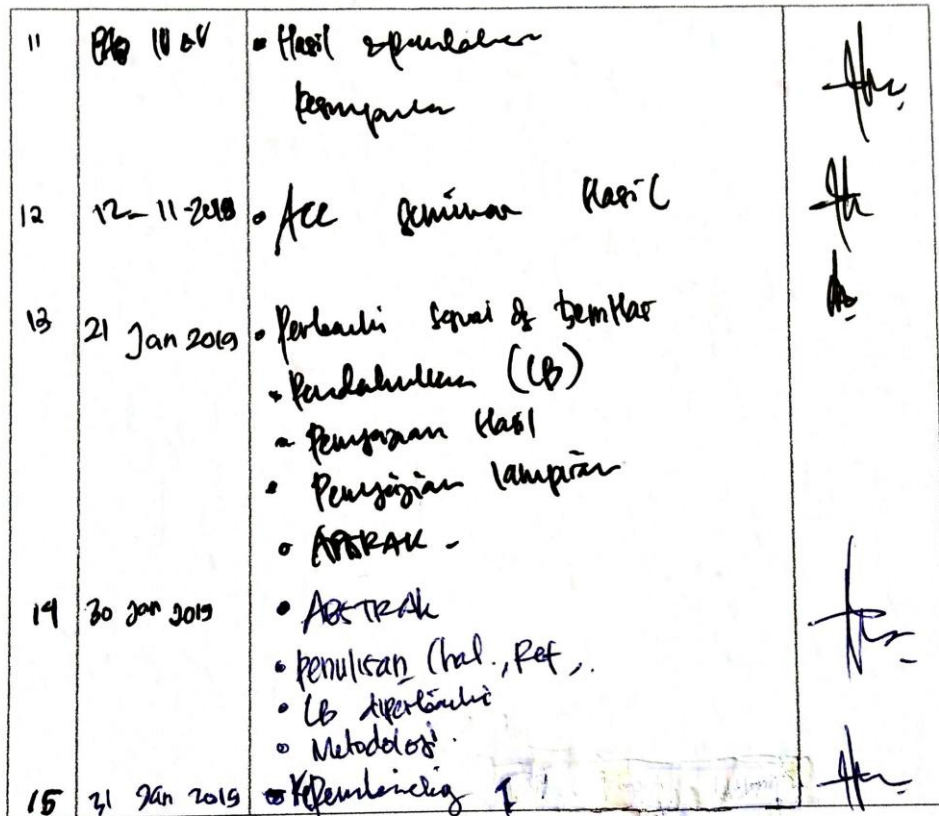 11 BAB IV & V • Hasil & pembahasan
kesimpulan
12 12-11-2018 • Acc seminar Hasil
13 21 Jan 2019 • Perbaiki sesuai
• Pendahuluan (LB)
• Penyajian Hasil
• Penyajian lampiran
• ABSTRAK -
14 30 Jan 2019 • ABSTRAK
• penulisan (hal., Ref,.
• LB diperbaiki
• Metodologi.
15 31 Jan 2019 • Ke pembimbing I